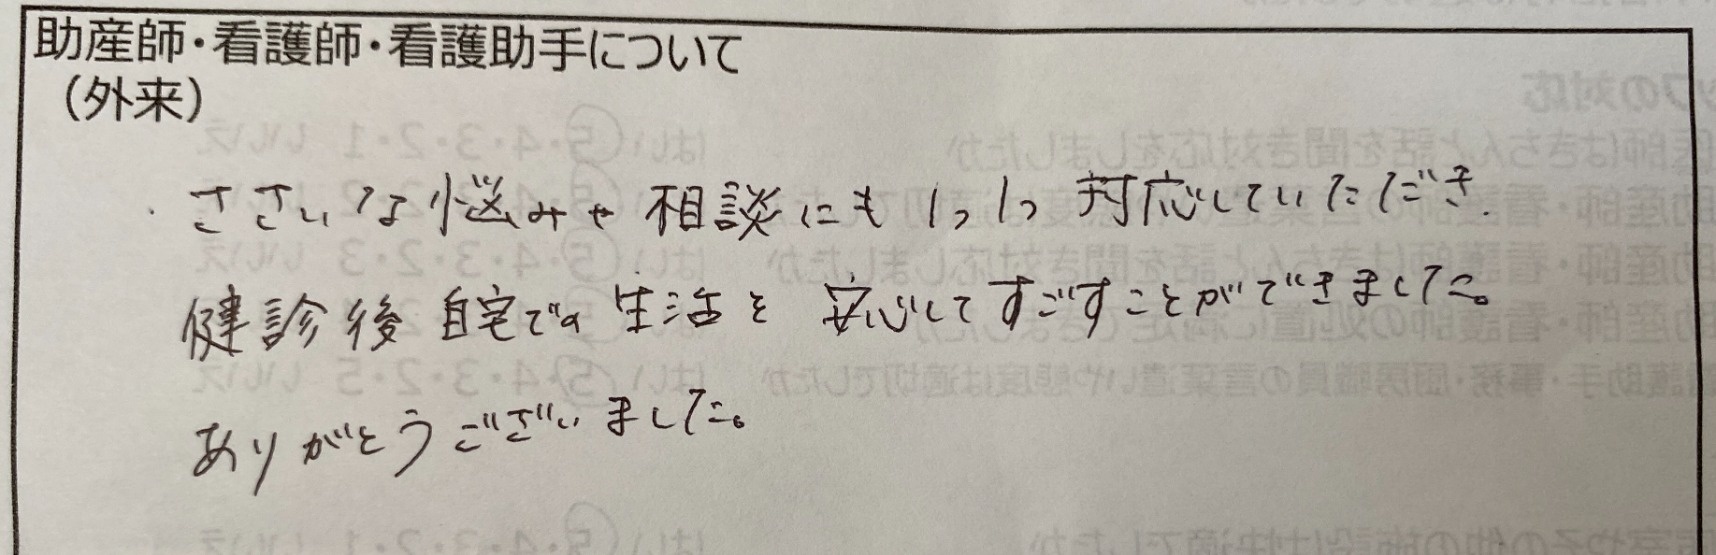 助産師・看護師・看護助手について
（外来）
ささいな悩みや相談にも1つ1つ対応していただき、
健診後自宅での生活を安心してすごすことができました。
ありがとうございました。